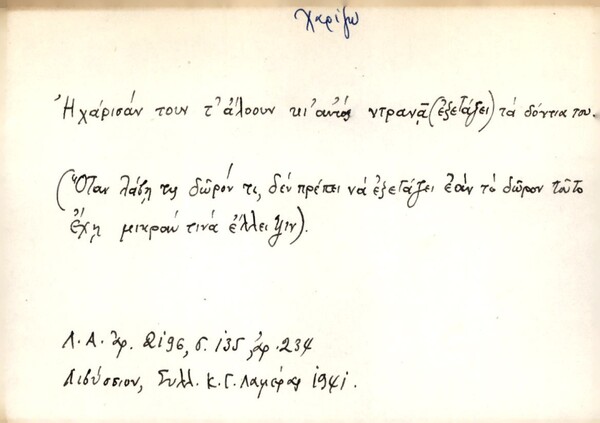 χαρίζω
Ἠχάρισάν τουν τ᾽ ἄλοουν κι᾽ αὐτός ντρανᾷ (ἐξετάζει) τά δόντια του.
(Ὅταν λάβῃ τις δῶρόν τι, δέν πρέπει νά ἐξετάζει ἐάν τό δῶρον τοῦτο
ἔχῃ μικράν τινά ἔλλειψιν).
Λ. Α. ἀρ. 2196, σ. 135, ἀρ. 234
Λιβύσσιον, Συλλ. Κ. Γ. Λαμέρας 1941.